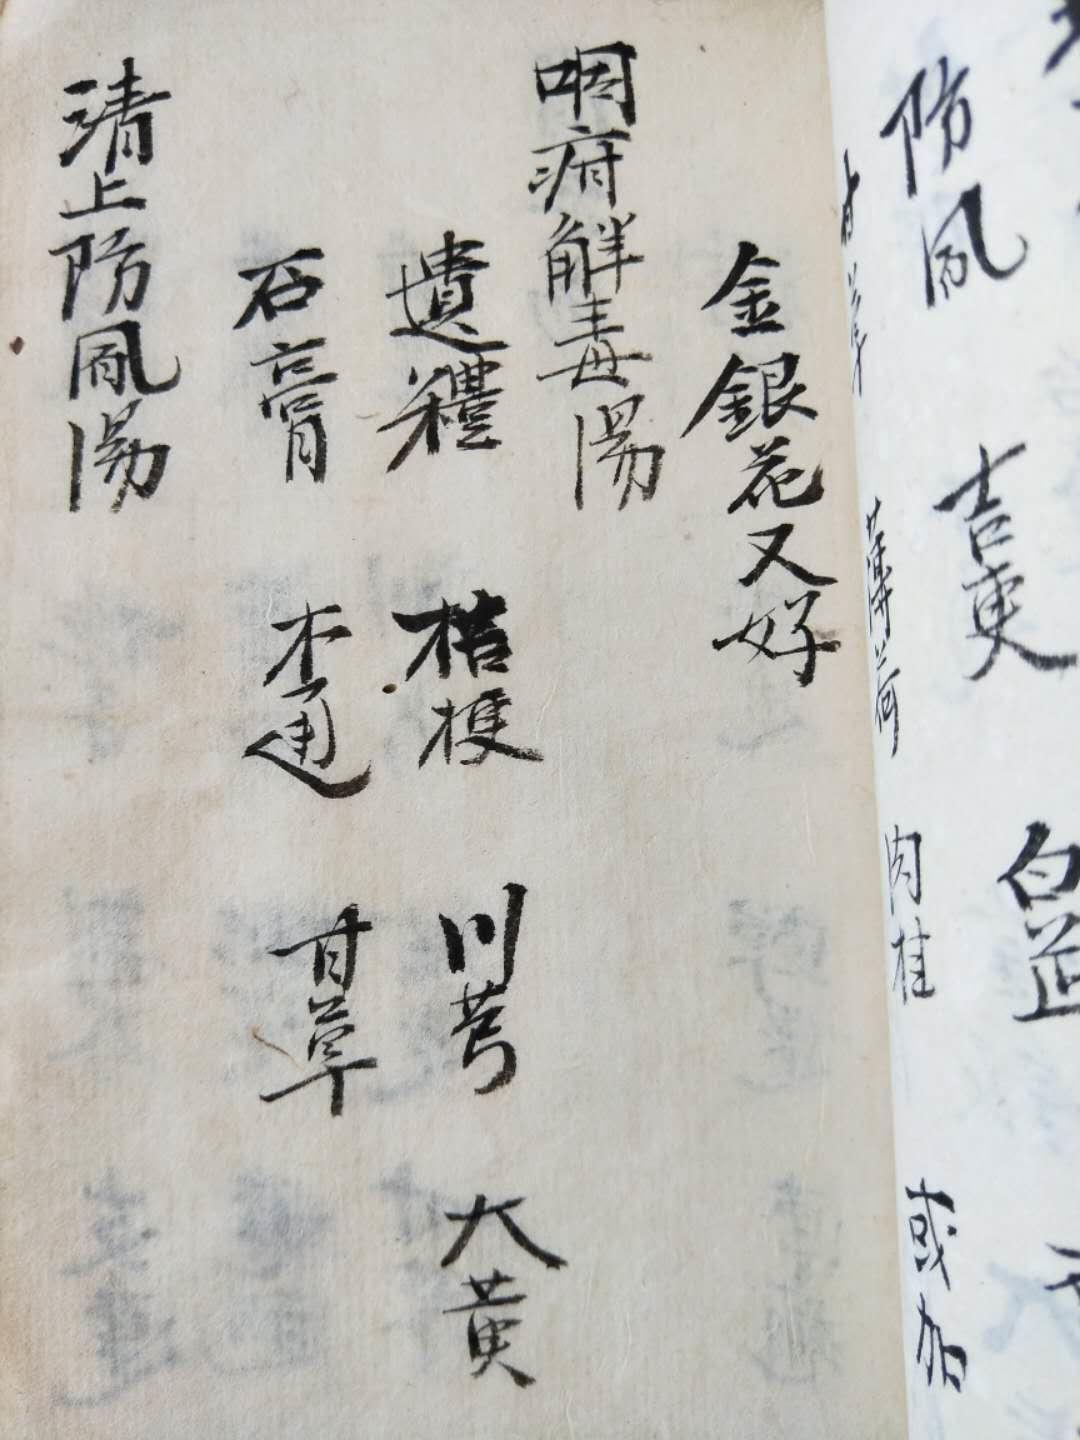 防風 吉更 白芷
甘草 薄荷 肉桂 或加
金銀花又好
咽疳解毒湯
遺禮 桔梗 川芎 大黄
石膏 木通 甘草
清上防風湯